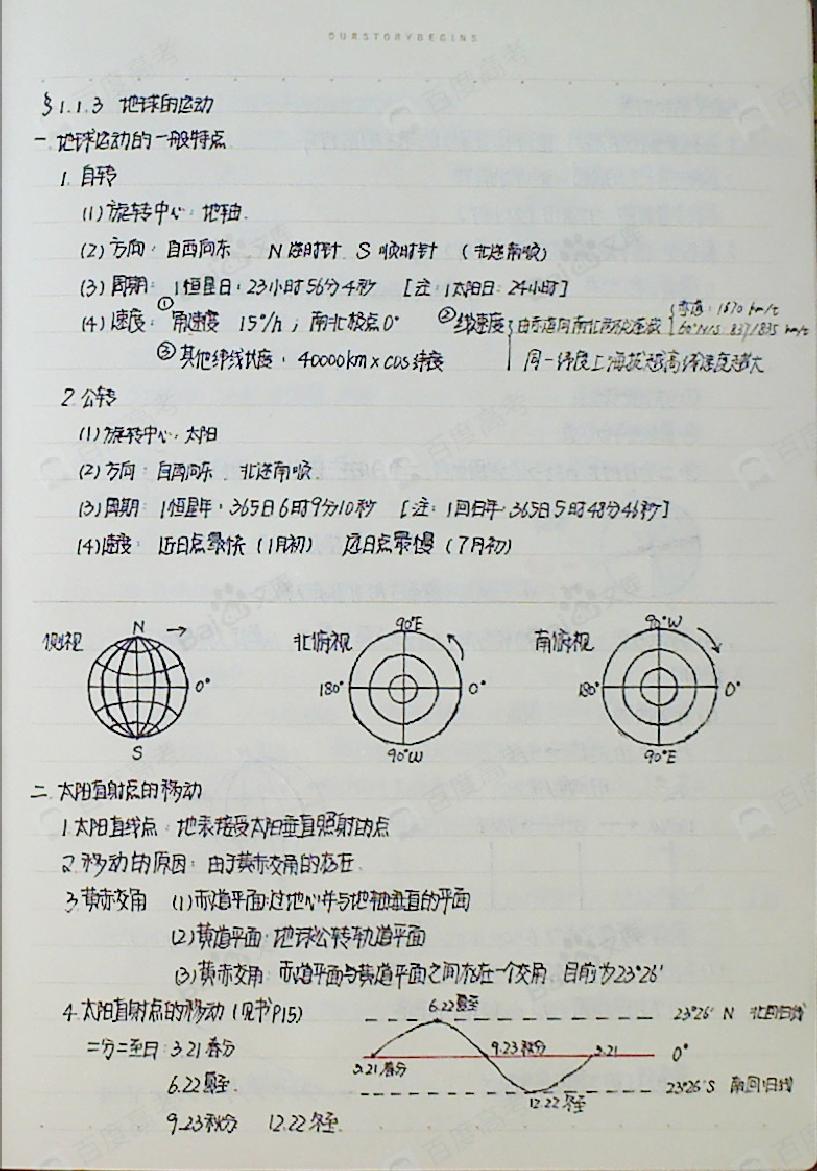 OURSTORYBEGINS
§1.1.3 地球的运动
一.地球运动的一般特点.
1. 自转
(1)旋转中心：地轴.
(2)方向：自西向东、N逆时针、S顺时针 (北逆南顺)
(3)周期：1恒星日：23小时56分4秒 [注：1太阳日：24小时]
(4)速度：①角速度 15°/h；南北极点0° ②线速度 由赤道向南北两极递减 赤道：1670 km/h
60°N/S：837/835 km/h
③其他纬线长度：40000km×cos纬度 同一纬度上海拔越高线速度越大
2.公转
(1)旋转中心：太阳
(2)方向：自西向东、北逆南顺.
(3)周期：1恒星年：365日6时9分10秒 [注：1回归年：365日5时48分46秒]
(4)速度：近日点最快(1月初) 远日点最慢(7月初)
侧视 N 0° S
北俯视 90°E 180° 0° 90°W
南俯视 90°W 180° 0° 90°E
二.太阳直射点的移动
1.太阳直线点：地表接受太阳垂直照射的点
2.移动的原因：由于黄赤交角的存在.
3.黄赤交角 (1)赤道平面:过地心并与地轴垂直的平面
(2)黄道平面：地球公转轨道平面
(3)黄赤交角：赤道平面与黄道平面之间存在一个交角，目前为23°26′
4.太阳直射点的移动(见书P15)
二分二至日：3.21春分
6.22夏至.
9.23秋分 12.22冬至.
6.22夏至 23°26′N 北回归线
3.21春分 9.23秋分 3.21 0°
12.22冬至 23°26′S 南回归线